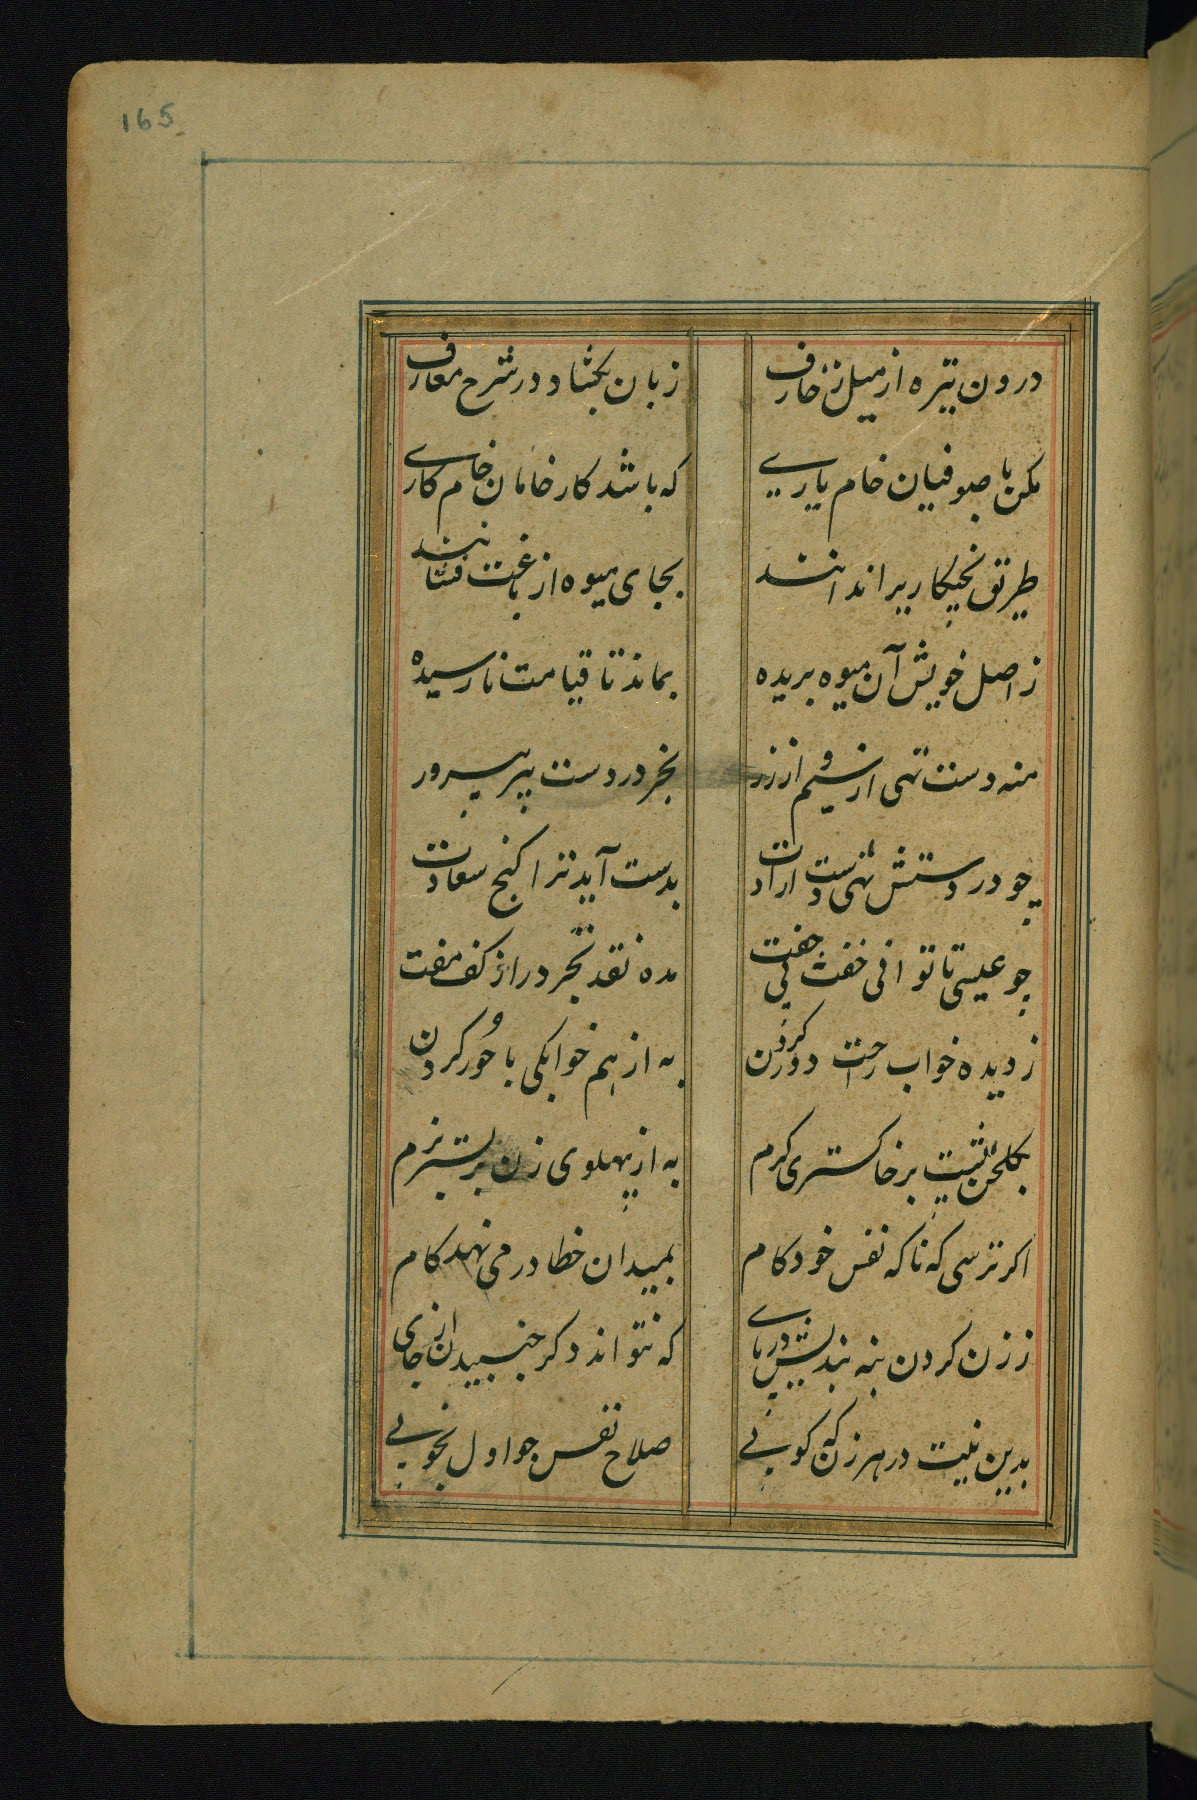 165
درون تیره از میل زخارف زبان بکشاد در شرح معارف
مکن با صوفیان خام یاری که باشد کار خامان خام کاری
طریق پختگی کاری ندانند بجای میوه از باغت فشانند
ز اصل خویش آن میوه بریده بماند تا قیامت نارسیده
منه دست تهی از سیم و از زر بخر در دست پیر پیرور
چو در دستش نهی دست ارادت بدست آید ترا کنج سعادت
چو عیسی تا توانی خفت بی جفت مده نقد تجرد را ز کف مفت
ز دیده خواب راحت دور کردن به از هم خوابکی با حور کردن
بکلخن پشت بر خاکستری کرم به از پهلوی زن بر بستر نرم
اکر ترسی که ناکه نفس خودکام بمیدان خطا در می نهد کام
ز زن کردن بنه بندیش در پای که نتواند دکر جنبیدن از جای
بدین نیت در هر زن که کوبی صلاح نفس جو اول نجوبی